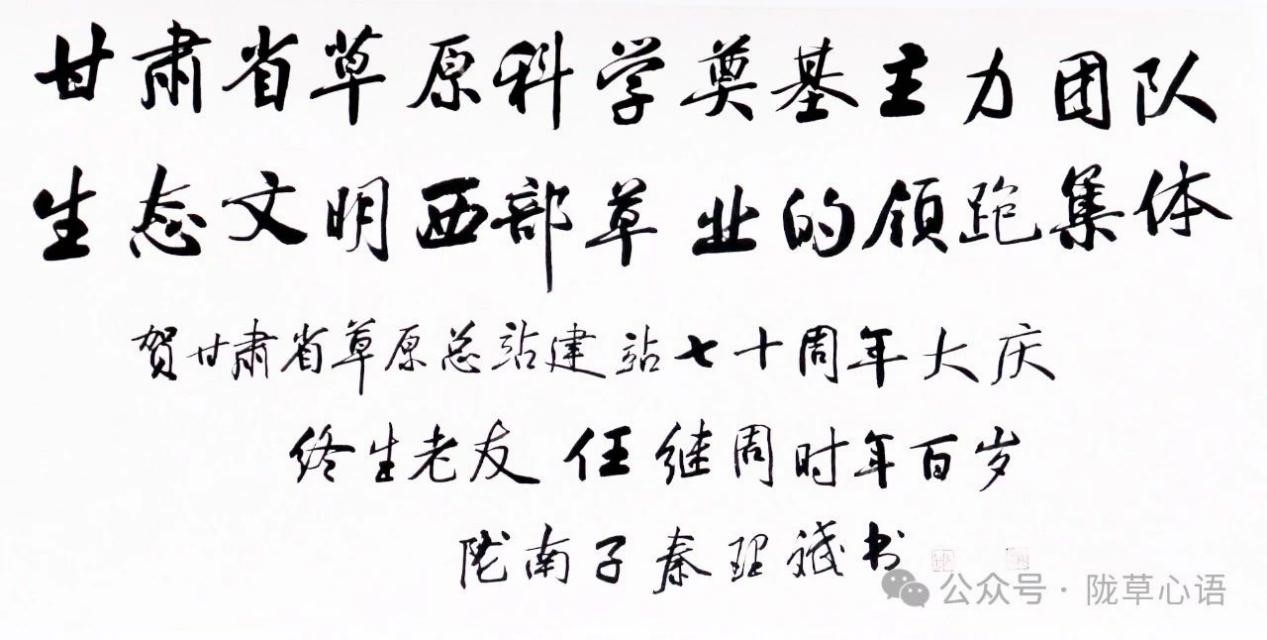 甘肃省草原科学奠基主力团队
生态文明西部草业的领跑集体
贺甘肃省草原总站建站七十周年大庆
终生老友 任继周时年百岁
陇南子秦理斌书
公众号·陇草心语